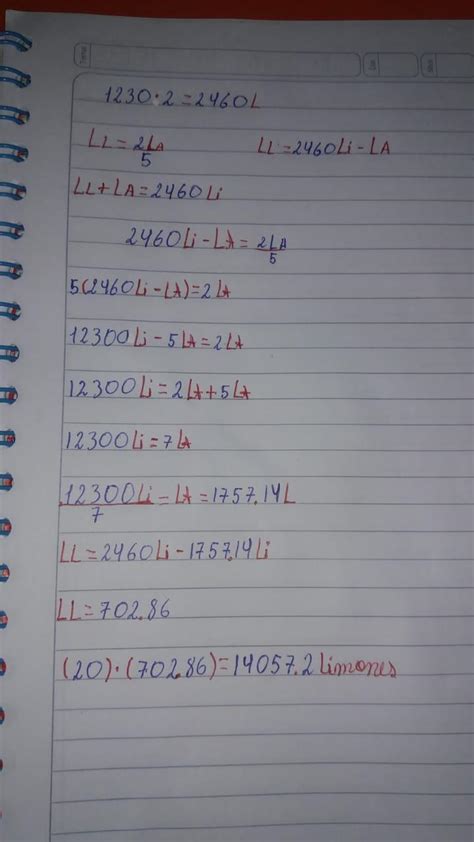 Tema
Día
Mes
1230 · 2 = 2460L
LL = 2LA/5 LL = 2460Li - LA
LL + LA = 2460Li
2460Li - LA = 2LA/5
5(2460Li - LA) = 2LA
12300Li - 5LA = 2LA
12300Li = 2LA + 5LA
12300Li = 7LA
12300Li/7 - LA = 1757.14L
LL = 2460Li - 1757.14Li
LL = 702.86
(20) · (702.86) = 14057.2 limones